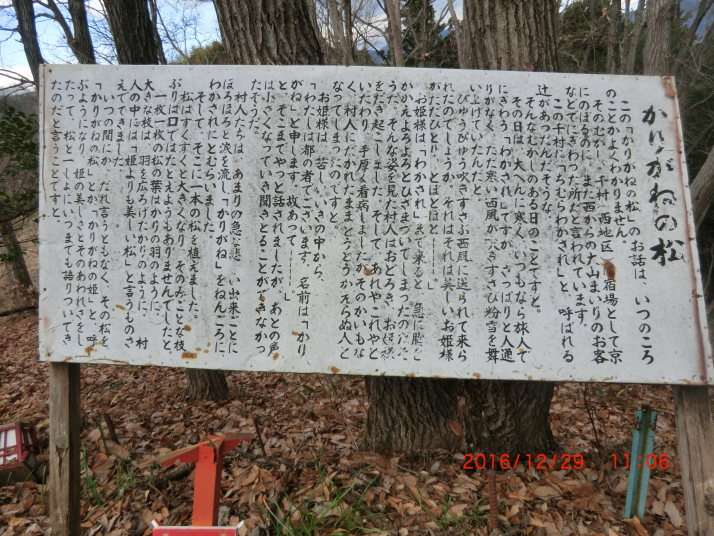 かりがねの松
この「かりがねの松」のお話は いつのころ
のことかよくわかりません。
そのむかし、千村 西地区 宿場として京
にのぼるのに、また西からの大山まいりのお客
などでにぎわった所だと言われています。
この千村に「ろむかいわかされ」と、呼ばれる
辻があったんだそうな。
そんなむかしのある日のことですと。
その日は、大へんに寒く、いつもなら旅人で
にぎわう「わかされ」ですが、さっぱりと人通
りがなく、ただ寒い西風が吹きすさび粉雪を舞
いふ たんだと。
ひゅうひゅう吹きすさぶ西風に送られて来ら
れたのでしょうか。それはそれは美しいお姫様
がただひとり、とぼとぼと……。
お姫様は、「わかされ」まで来ると 急に胸を
かかえよろよろとひざまづいてしまったのだそ
うだ。そんな姿を見た村人はおどろき、お姫様
をだき起こしました。そして、あれやこれやと
くいたわり、手厚く看病しましたがそのかいもな
、村人にだかれたままとうとうかえらぬ人と
なってしまったのですと。
お姫様は、苦しい息の中から、
「わたしは都の者でございます。名前は「かり
がね」と申します。故あって……」
と、そこまでやっと話されましたが、あとの声
は小さくなっていき聞きとることができなかっ
たそうだ。
村人たちは、あまりの急な 悲 い出来ごとに
ほろほろと涙を流し「かりがね」をねんごろに
わかされにとむらいました。
そして、そこに一本の松を植えました。
松はすくすくと大きくなり、そのみごとな枝
ぶりは口ではたとえようもありませんでしたと
一枚一枚の松の葉はかりの羽のように、
大きな枝は、羽を広ろげたかりのように、 村
人の中には「姫よりも美しい松」と言うものさ
えでてきました。
いつの間にか、だれ言うともなく、その松を
「かりがねの松」とか「かりがねの姫」と、呼
ぶようになり、姫の美しさとそのあわれさをし
たって、松と一しょにいつまでも語りついてき
たのだと言うことです。
2016/12/29 11:06